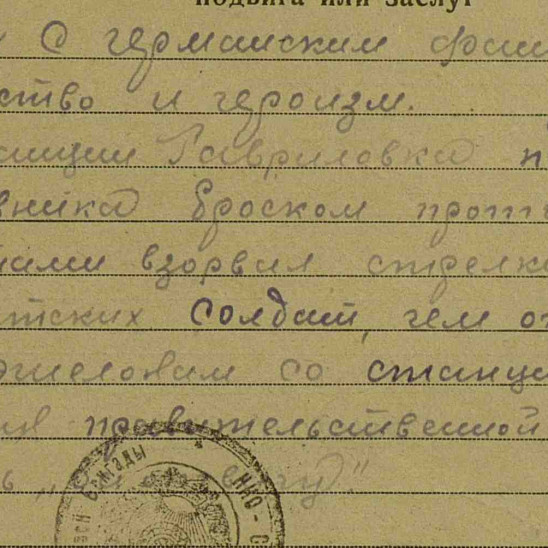 подвига или заслуг
с германским фаш
ство и героизм.
анции Гавриловка п
вника броском прот
нами взорвал стрелк
тских солдат, чем от
эшелонам со станци
правительственной
ь „За отвагу"
бригады
НКО - С